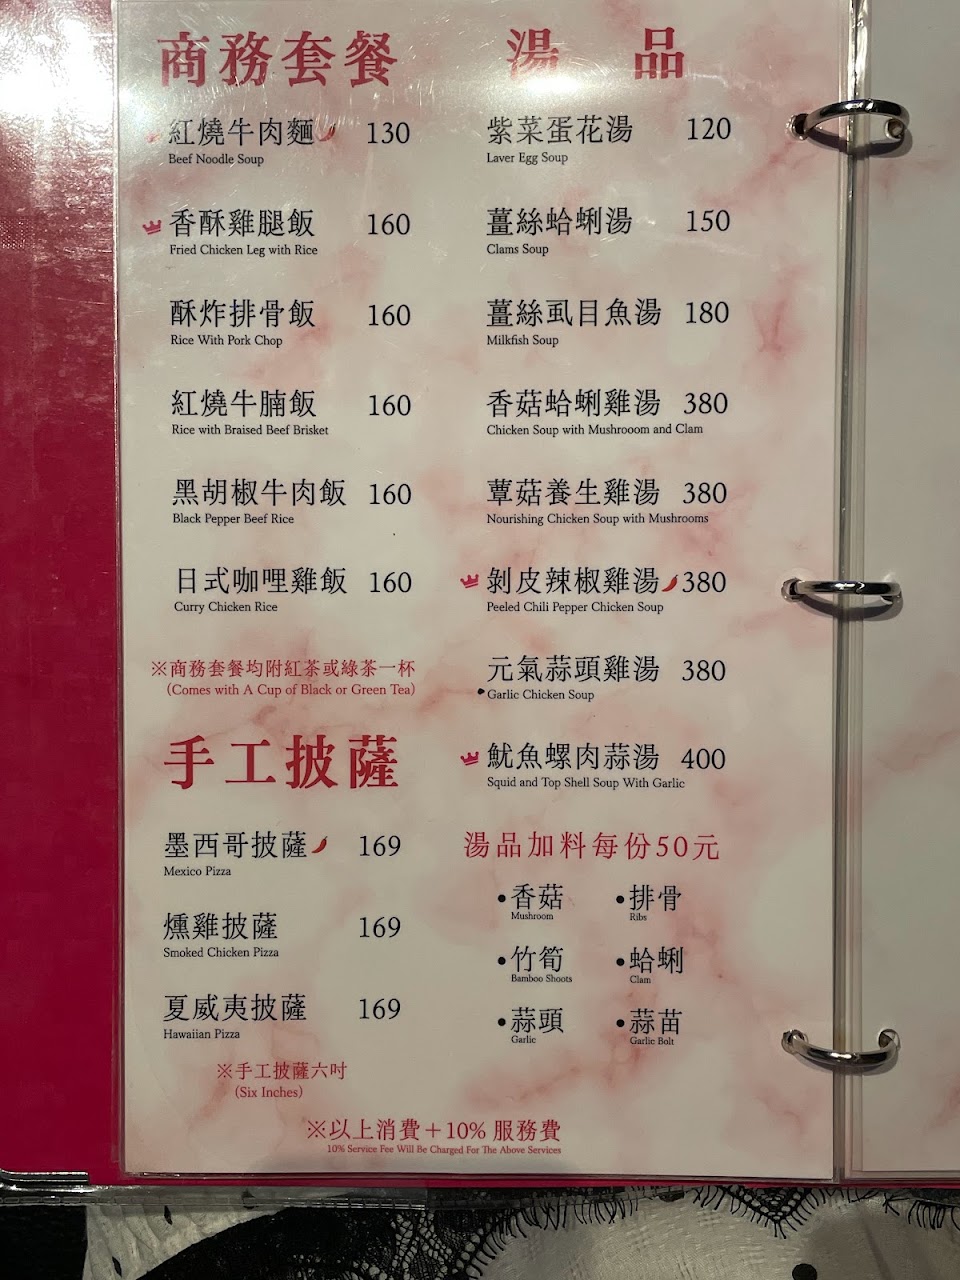 商務套餐
紅燒牛肉麵 130
Beef Noodle Soup
香酥雞腿飯 160
Fried Chicken Leg with Rice
酥炸排骨飯 160
Rice With Pork Chop
紅燒牛腩飯 160
Rice with Braised Beef Brisket
黑胡椒牛肉飯 160
Black Pepper Beef Rice
日式咖哩雞飯 160
Curry Chicken Rice
※商務套餐均附紅茶或綠茶一杯
(Comes with A Cup of Black or Green Tea)
手工披薩
墨西哥披薩 169
Mexico Pizza
燻雞披薩 169
Smoked Chicken Pizza
夏威夷披薩 169
Hawaiian Pizza
※手工披薩六吋
(Six Inches)
湯 品
紫菜蛋花湯 120
Laver Egg Soup
薑絲蛤蜊湯 150
Clams Soup
薑絲虱目魚湯 180
Milkfish Soup
香菇蛤蜊雞湯 380
Chicken Soup with Mushrooom and Clam
蕈菇養生雞湯 380
Nourishing Chicken Soup with Mushrooms
剝皮辣椒雞湯 380
Peeled Chili Pepper Chicken Soup
元氣蒜頭雞湯 380
Garlic Chicken Soup
魷魚螺肉蒜湯 400
Squid and Top Shell Soup With Garlic
湯品加料每份50元
•香菇 •排骨
Mushroom Ribs
•竹筍 •蛤蜊
Bamboo Shoots Clam
•蒜頭 •蒜苗
Garlic Garlic Bolt
※以上消費＋10% 服務費
10% Service Fee Will Be Charged For The Above Services